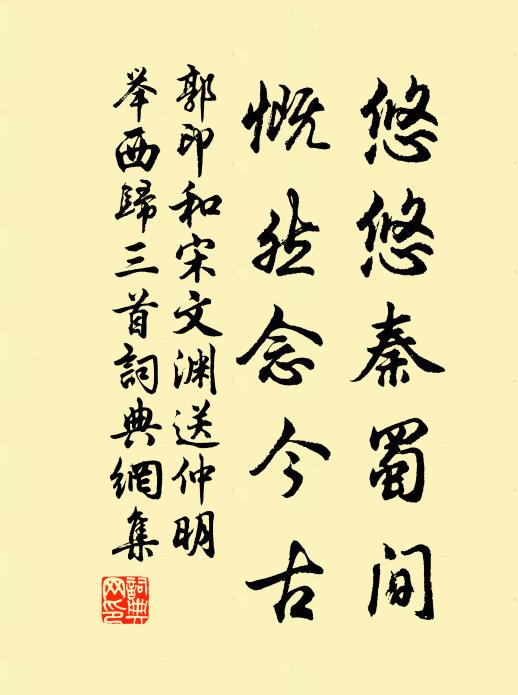 悠悠秦蜀间
慨然念今古
郭印和宋文渊送仲明
举西歸三首詞典網集
詞典網印